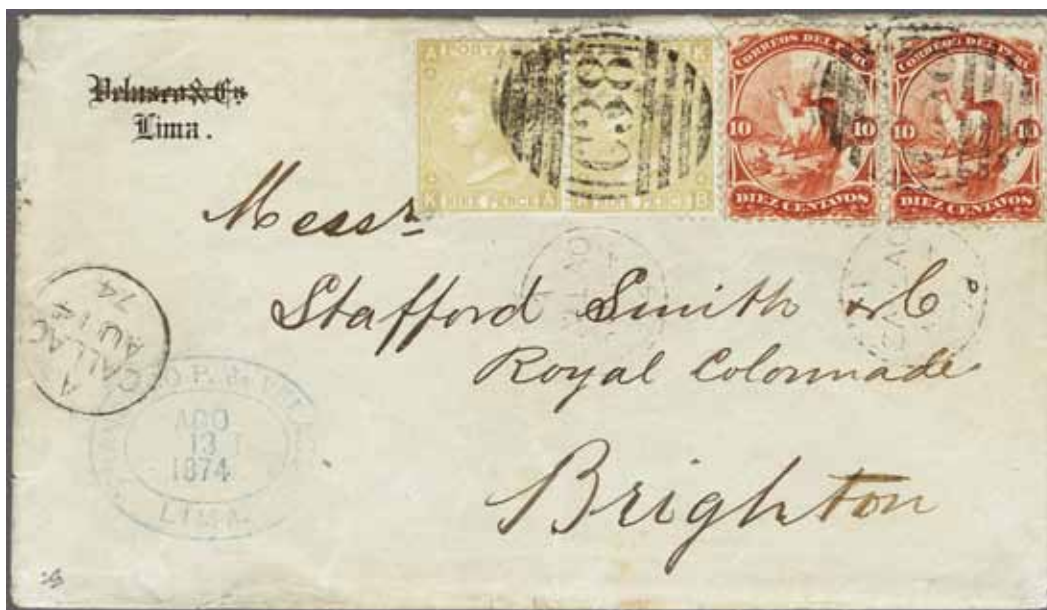 Velasco & Co
Lima.
POSTA
NINE PENCE
NINE PENCE
C38
CORREOS DEL PERU
10 10
DIEZ CENTAVOS
CORREOS DEL PERU
10 10
DIEZ CENTAVOS
Messrs
Stafford Smith & Co
Royal Colonnade
Brighton
A
CALLAO
AU 14
74
AGO
13
1874
LIMA.